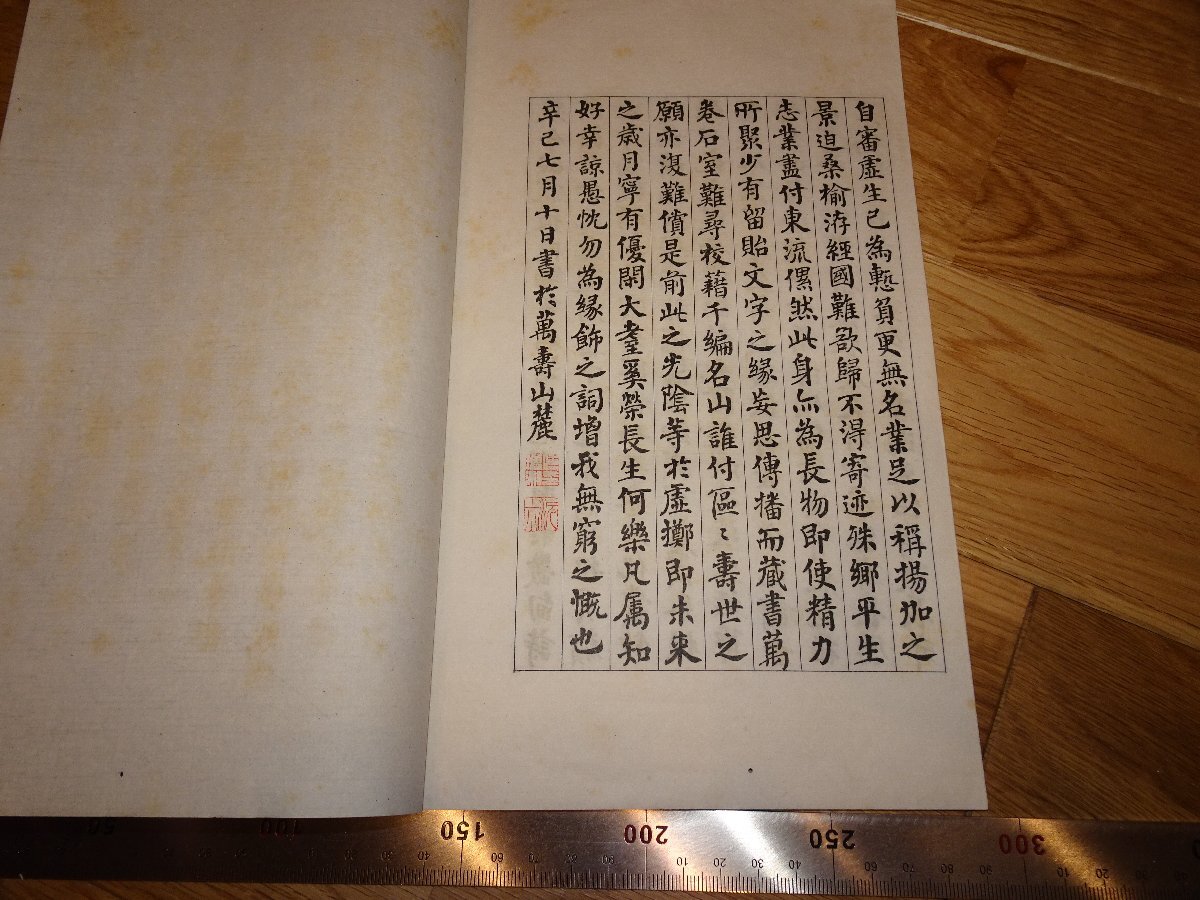 自審虛生已為慙負更無名業足以稱揚加之
景迫桑榆洊經國難欲歸不得寄迹殊鄉平生
志業盡付東流傫然此身亦為長物即使精力
所聚少有留貽文字之緣妄思傳播而藏書萬
卷石室難尋校藉千編名山誰付區〻壽世之
願亦復難償是前此之光陰等於虛擲即未來
之歲月寧有優閑大耋奚榮長生何樂凡属知
好幸諒愚忱勿為緣飾之詞增我無窮之慨也
辛巳七月十日書於萬壽山麓
50
100
150
200
250
300